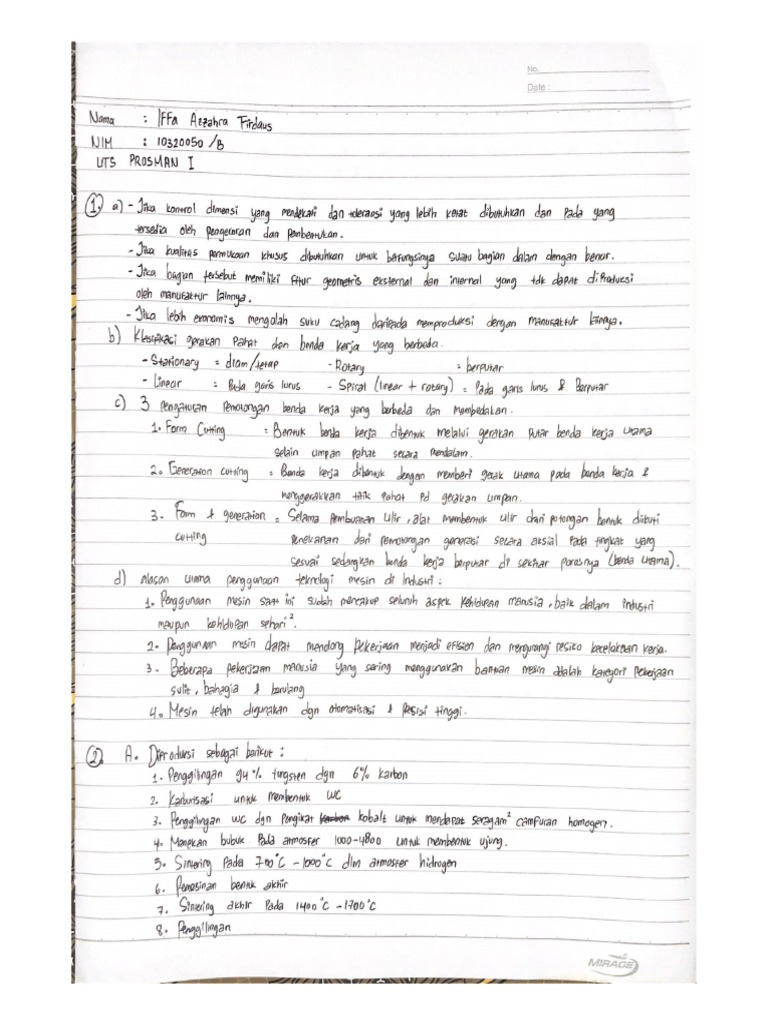 No.
Date :
Nama : Iffa Azzahra Firdaus
NIM : 10320050 /B
UTS PROSMAN I
1. a) - Jika kontrol dimensi yang mendekati dan toleransi yang lebih ketat dibutuhkan dan pada yang
tersedia oleh pengecoran dan pembentukan.
- Jika kualitas permukaan khusus dibutuhkan untuk berfungsinya suatu bagian dalam dengan benar.
- Jika bagian tersebut memiliki fitur geometris eksternal dan internal yang tdk dapat diproduksi
oleh manufaktur lainnya.
- Jika lebih ekonomis mengolah suku cadang daripada memproduksi dengan manufaktur lainnya.
b) Klasifikasi gerakan Pahat dan benda kerja yang berbeda.
- Stationary = diam/tetap - Rotary = berputar
- Linear = Pada garis lurus - Spiral (linear + rotary) = Pada garis lurus & Berputar
c) 3 Pengaturan Pemotongan benda kerja yang berbeda dan Membedakan.
1. Form Cutting = Bentuk benda kerja dibentuk melalui gerakan putar benda kerja utama
selain umpan pahat secara mendalam.
2. Generation cutting = Benda kerja dibentuk dengan memberi gerak utama pada benda kerja &
menggerakkan titik Pahat Pd gerakan umpan.
3. Form & generation = Selama pembuatan ulir, alat membentuk ulir dari potongan bentuk diikuti
cutting penekanan dari pemotongan generasi secara aksial pada tingkat yang
sesuai sedangkan benda kerja berputar di sekitar porosnya (benda utama).
d) alasan utama penggunaan teknologi mesin di Industri :
1. Penggunaan mesin saat ini sudah mencakup seluruh aspek kehidupan manusia, baik dalam industri
maupun kehidupan sehari².
2. Penggunaan mesin dapat mendong pekerjaan menjadi efision dan mengurangi resiko kecelakaan kerja.
3. Beberapa pekerjaan manusia yang sering menggunakan bantuan mesin adalah kategori pekerjaan
sulit, bahagia & berulang
4. Mesin telah digunakan dgn otomatisasi & Presisi tinggi.
2. A. Diproduksi sebagai berikut :
1. Penggilingan 94% tungsten dgn 6% karbon
2. Karburisasi untuk membentuk WC
3. Penggilingan WC dgn pengikat karbon kobalt untuk mendapat seragam² campuran homogen.
4. Menekan bubuk Pada atmosfer 1000-4800 untuk membentuk ujung.
5. Sintering Pada 700°C - 1000°C dlm atmosfer hidrogen
6. Pemesinan bentuk akhir
7. Sintering akhir Pada 1400°C - 1700°C
8. Penggilingan
MIRAGE